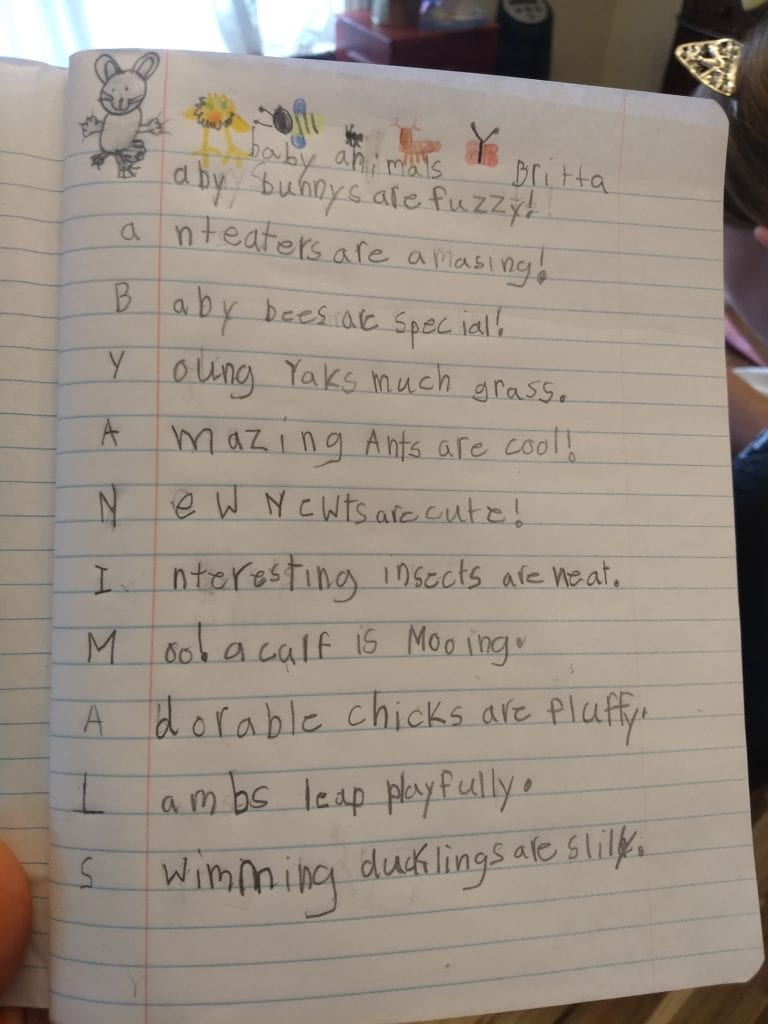 baby animals Britta
aby bunnys are fuzzy!
a nteaters are amasing!
B aby bees are special!
Y oung Yaks much grass.
A mazing Ants are cool!
N ew Newts are cute!
I nteresting insects are neat.
M oo! a calf is Mooing.
A dorable chicks are fluffy.
L ambs leap playfully.
S wimming ducklings are